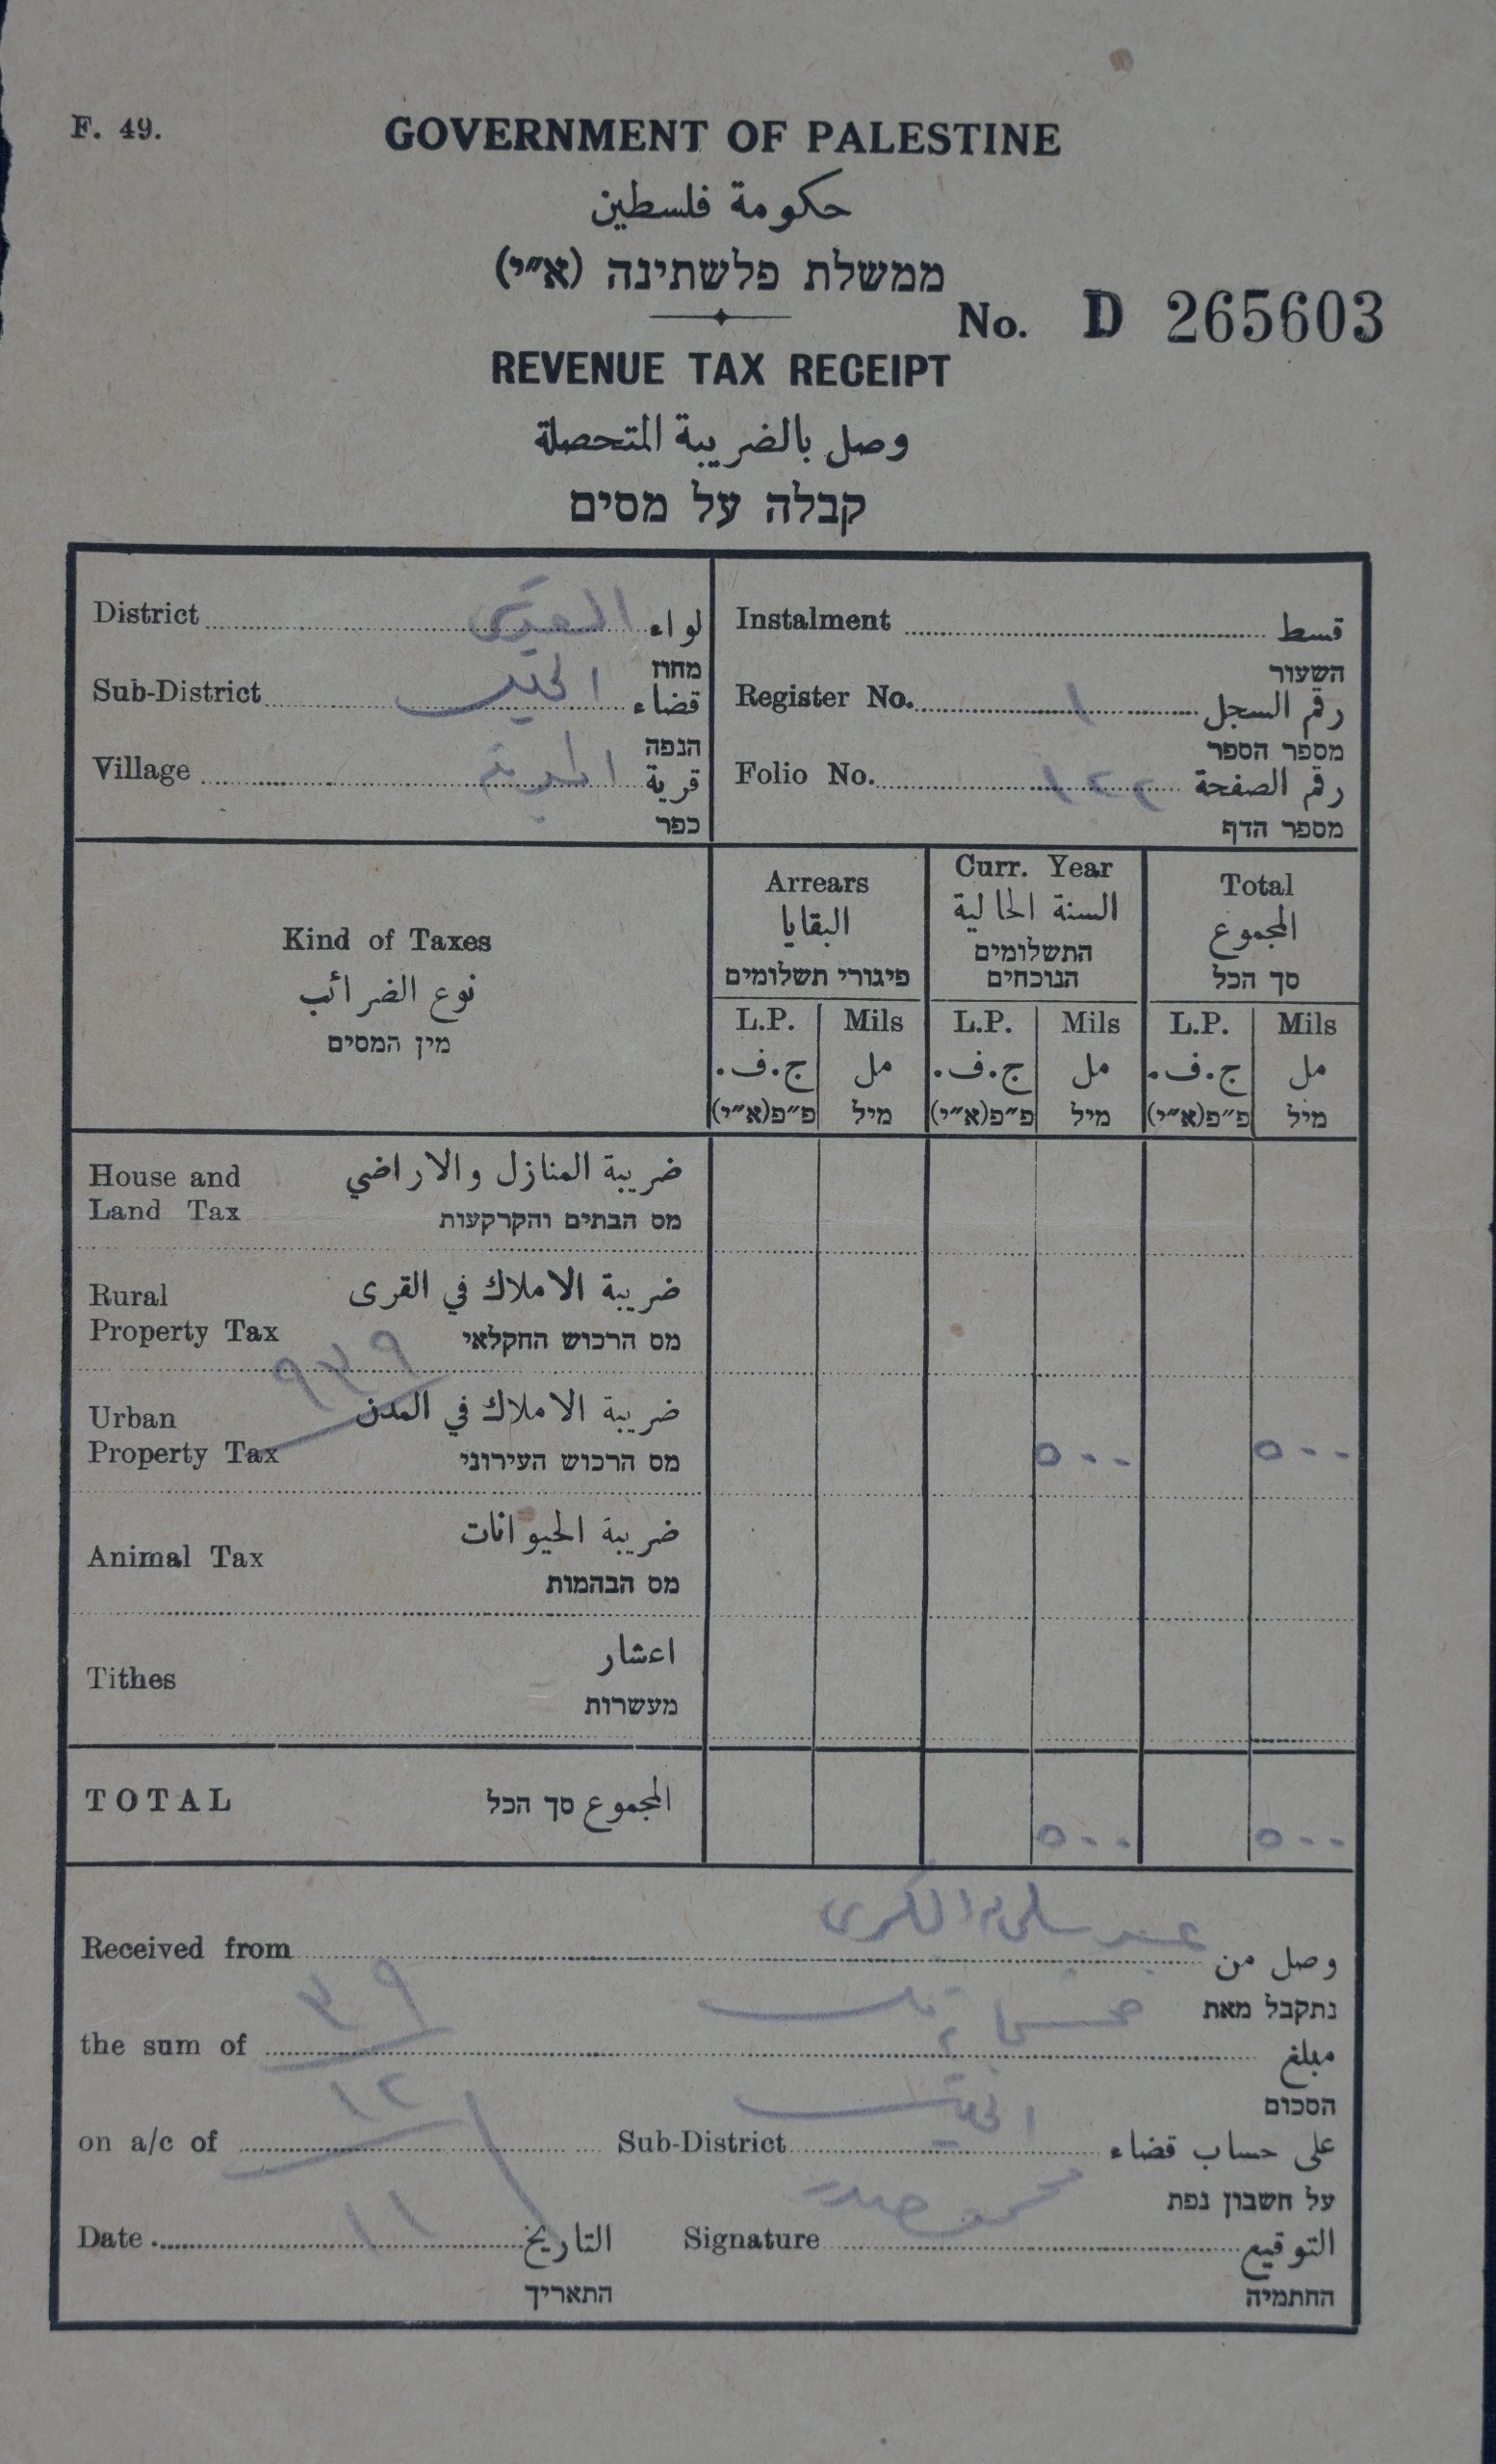 F. 49.
GOVERNMENT OF PALESTINE
حكومة فلسطين
ממשלת פלשתינה (א״י)
No. D 265603
REVENUE TAX RECEIPT
وصل بالضريبة المتحصلة
קבלה על מסים
District القدس لواء
מחוז
Sub-District الخليل قضاء
הנפה
Village المدينة قرية
כפר
Instalment قسط
השעור
Register No. ١ رقم السجل
מספר הספר
Folio No. رقم الصفحة
מספר הדף
Kind of Taxes
نوع الضرائب
מין המסים
Arrears
البقايا
פיגורי תשלומים
Curr. Year
السنة الحالية
התשלומים
הנוכחים
Total
المجموع
סך הכל
L.P. Mils L.P. Mils L.P. Mils
ج.ف. مل ج.ف. مل ج.ف. مل
פ״פ(א״י) מיל פ״פ(א״י) מיל פ״פ(א״י) מיל
House and ضريبة المنازل والاراضي
Land Tax מס הבתים והקרקעות
Rural ضريبة الاملاك في القرى
Property Tax מס הרכוש החקלאי
٩٣٩
Urban ضريبة الاملاك في المدن
Property Tax מס הרכוש העירוני ٥٠٠ ٥٠٠
Animal Tax ضريبة الحيوانات
מס הבהמות
Tithes اعشار
מעשרות
TOTAL המجموع סך הכל ٥٠٠ ٥٠٠
Received from عبد وصل من
נתקבל מאת
the sum of ٣٩ مبلغ
הסכום
on a/c of ١٢ Sub-District الخليل على حساب قضاء
על חשבון נפת
Date ١١ التاريخ Signature التوقيع
התאריך החתמיה